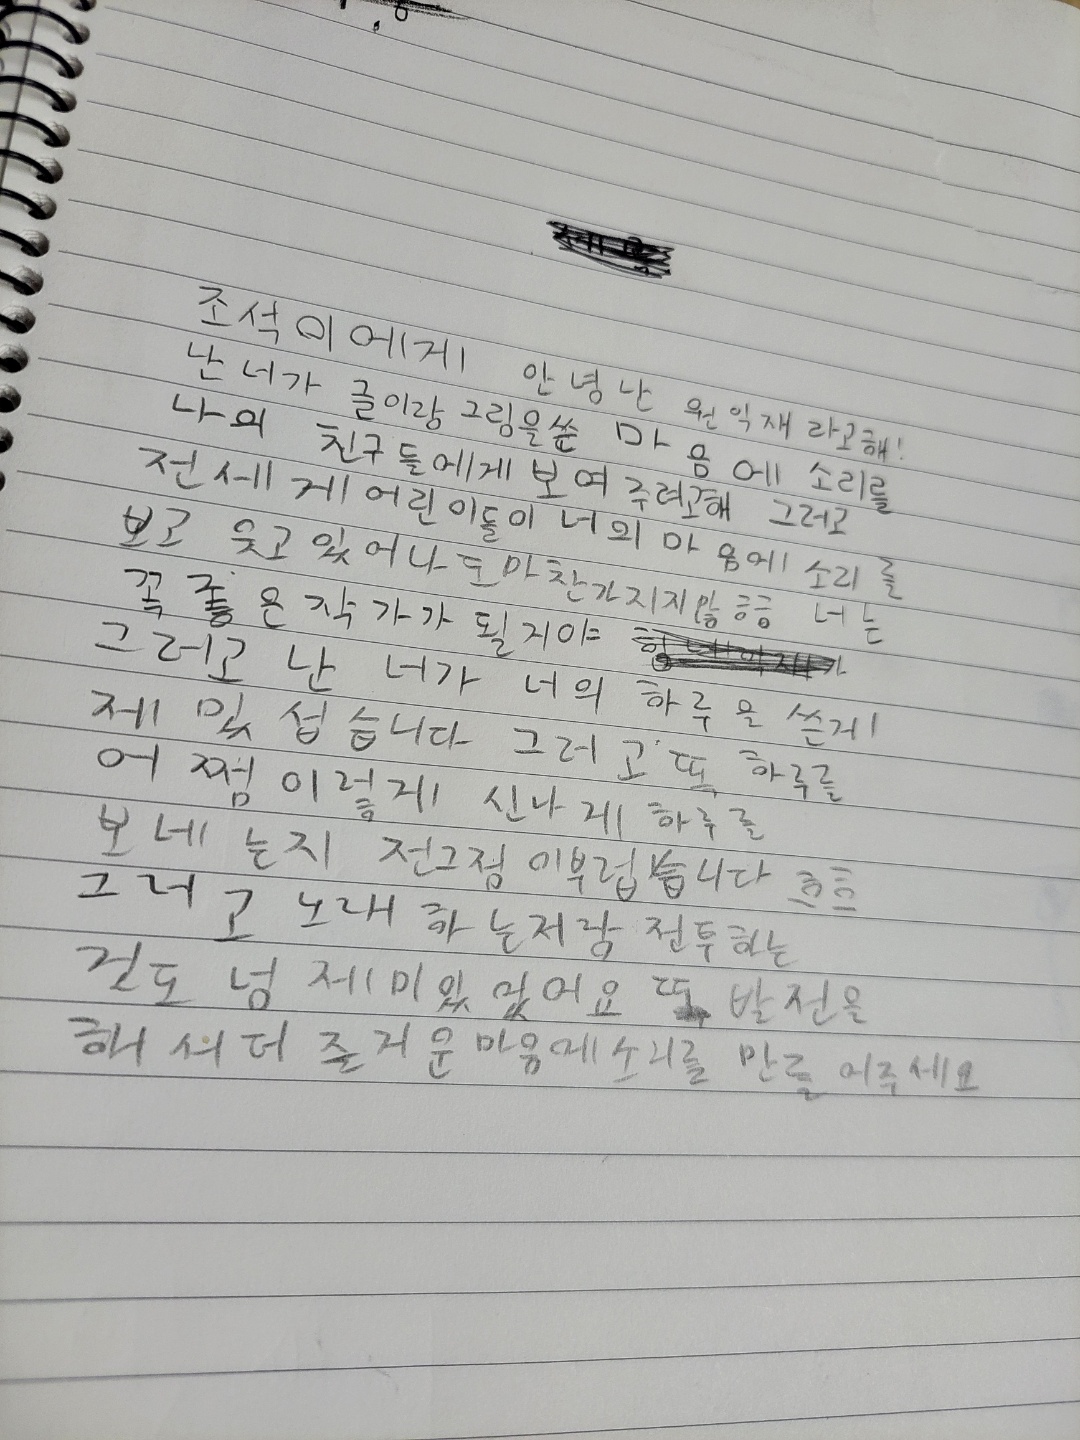 조석이에게 안녕난 원익재라고해!
난 너가 글이랑그림을쓴 마음에 소리를
나의 친구들에게 보여주려고해 그러고
전세게어린이들이 너의 마음에 소리를
보고 웃고있어나도마찬가지지않흠 너는
꼭 좋은작가가 될거야
그러고 난 너가 너의 하루을 쓴게
제밌섭습니다 그러고 또 하루를
어쩜이렇게 신나게 하루를
보네는지 전그점이부럽습니다 흐흐
그러고 노래하는저랑 전투하는
것도 넘 제미있었어요 또 발전을
해서더 즐거운마음에소리를 만들어주세요